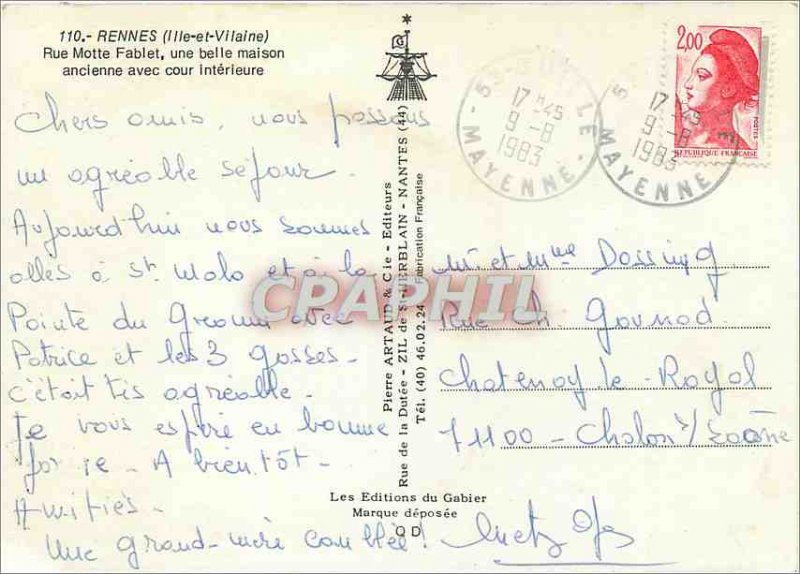 110.- RENNES (Ille-et-Vilaine)
Rue Motte Fablet, une belle maison
ancienne avec cour intérieure
Chers amis, nous passons
un agréable séjour.
Aujourd'hui nous sommes
allés à St. Malo et à la
Pointe du Grouin avec
Patrice et les 3 gosses -
c'était très agréable -
Je vous espère en bonne
forme - A bientôt -
Amitiés -
Une grand-mère comblée !
Pierre ARTAUD & Cie - Editeurs
Rue de la Dutée - ZIL de St-HERBLAIN - NANTES (44)
Tél. (40) 46.02.24 Fabrication Française
Les Editions du Gabier
Marque déposée
QD
17 H 45
9 -8
1983
MAYENNE
17 H 45
9 -8
1983
MAYENNE
2,00
POSTES
REPUBLIQUE FRANÇAISE
Mr et Mme Dossing
Rue Ch. Gounod
Chatenoy-le-Royal
71100 - Chalon s/Saône
CPAPHIL